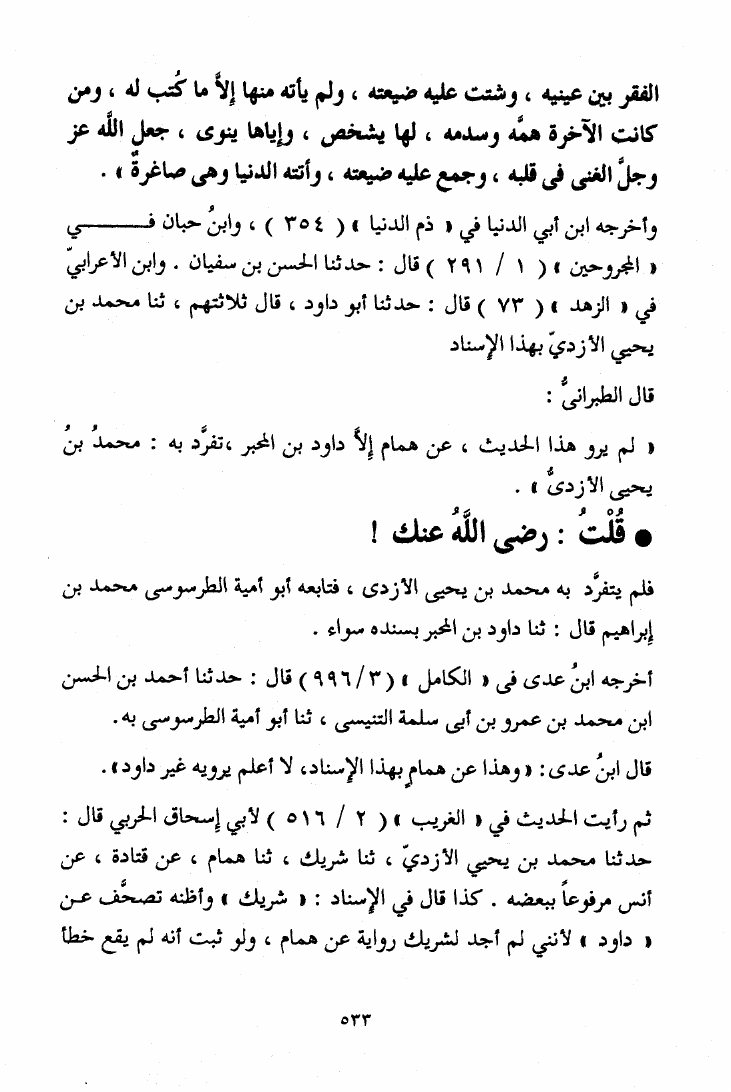 الفقر بين عينيه ، وشتت عليه ضيعته ، ولم يأته منها إلاَّ ما كُتب له ، ومن
كانت الآخرة همَّه وسدمه ، لها يشخص ، وإياها ينوى ، جعل اللَّه عز
وجلَّ الغنى فى قلبه ، وجمع عليه ضيعته ، وأتته الدنيا وهى صاغرةٌ » .
وأخرجه ابن أبي الدنيا في « ذم الدنيا » ( ٣٥٤ ) ، وابنُ حبان فـــــــي
« المجروحين » ( ١ / ٢٩١ ) قال : حدثنا الحسن بن سفيان . وابن الأعرابيّ
في « الزهد » ( ٧٣ ) قال : حدثنا أبو داود ، قال ثلاثتهم ، ثنا محمد بن
يحيي الأزديّ بهذا الإسناد
قال الطبرانىُّ :
« لم يرو هذا الحديث ، عن همام إلاَّ داود بن المحبر ،تفرَّد به : محمدُ بنُ
يحيى الأزدىُّ » .
● قُلْتُ : رضى اللَّهُ عنك !
فلم يتفرَّد به محمد بن يحيى الأزدى ، فتابعه أبو أمية الطرسوسى محمد بن
إبراهيم قال : ثنا داود بن المحبر بسنده سواء .
أخرجه ابنُ عدى فى « الكامل » (٩٩٦/٣) قال : حدثنا أحمد بن الحسن
ابن محمد بن عمرو بن أبى سلمة التنيسى ، ثنا أبو أمية الطرسوسى به.
قال ابنُ عدى: «وهذا عن همامٍ بهذا الإسناد، لا أعلم يرويه غير داود».
ثم رأيت الحديث في « الغريب » ( ٢ / ٥١٦ ) لأبي إسحاق الحربي قال :
حدثنا محمد بن يحيي الأزديّ ، ثنا شريك ، ثنا همام ، عن قتادة ، عن
أنس مرفوعاً ببعضه . كذا قال في الإسناد : « شريك » وأظنه تصحَّف عـن
« داود » لأنني لم أجد لشريك رواية عن همام ، ولو ثبت أنه لم يقع خطأ
٥٣٣